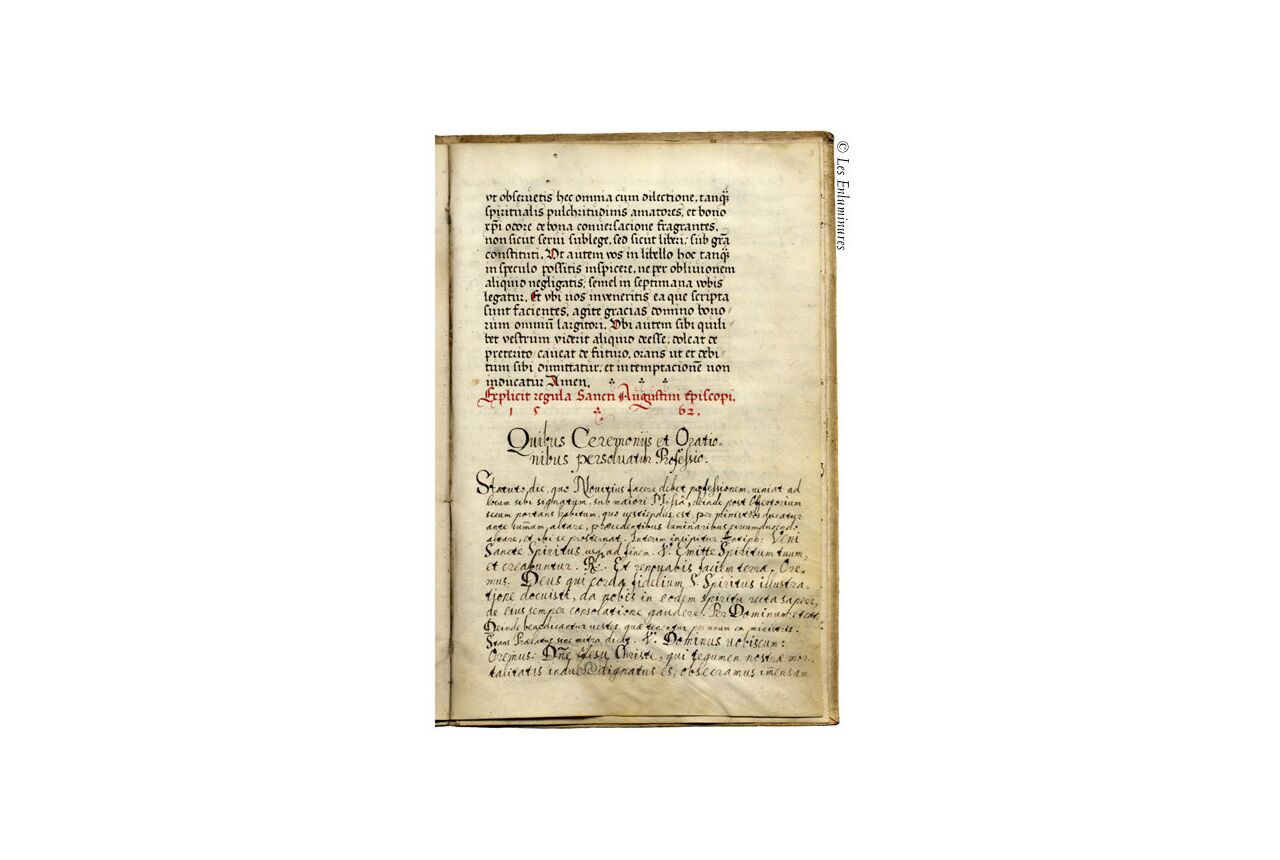 vt obseruetis hec omnia cum dilectione, tanq̃
spiritualis pulchritudinis amatores, et bono
xp̃i odore de bona conuersacione fragrantes,
non sicut serui sub lege, sed sicut liberi, sub grã
constituti. Vt autem vos in libello hoc tanq̃
in speculo possitis inspicere, ne per obliuionem
aliquid negligatis, semel in septimana vobis
legatur. Et vbi uos inveneritis ea que scripta
sunt facientes, agite gracias domino bono-
rum omniũ largitori. Vbi autem sibi quili-
bet vestrum viderit aliquid deesse, doleat de
preterito, caueat de futuro, orans ut et debi-
tum sibi dimittatur, et in temptacionẽ non
inducatur Amen.
Explicit regula Sancti Augustini Episcopi.
1 5 62.
Quibus Ceremonijs et Oratio-
nibus persoluatur Professio.
Statuto die, quo Nouitius facere debet professionem, ueniat ad
locum sibi signatum, sub maiori Missâ, deinde post Offertorium
secum portans habitum, quo uestiendus est, per ministros ducatur
ante sum̃um altare, præcedentibus luminaribus circumducendo
altare, et ibi se prosternat. Interim incipitur Antiph: Veni
Sancte Spiritus usq̃ ad finem. V. Emitte Spiritum tuum,
et creabuntur. R. Et renouabis faciem terræ. Ore-
mus. Deus qui corda fidelium S. Spiritus illustra-
tione docuisti, da nobis in eodem spiritu recta sapere,
de eius semper consolatione gaudere. Per Dominum etcæt.
Deinde benedicantur uestes, quæ tenentur per unum ex ministris.
Stans Prælatus sine mitra dicit. V. Dominus uobiscum:
Oremus. Dñe Iesu Christe, qui tegumen nostræ mor-
talitatis induere dignatus es, obsecramus im̃ensam
© Les Enluminures